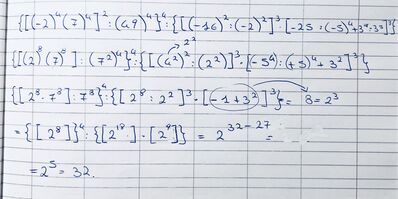 {[(-2)⁴(7)⁴]² : (49)⁴}⁴ : {[(-16)² : (-2)²]³ [-25 : (-5)⁴ + 3⁴ : 3²]³}
2²
{[(2)⁸(7)⁸] : (7²)⁴}⁴ : {[(4²)² : (2²)]³ · [-5⁴ : (+5)⁴ + 3²]³}
{[2⁸ · 7⁸] : 7⁸}⁴ : {[2⁸ : 2²]³ · [-1+3²]³} = 8 = 2³
= {[2⁸]}⁴ : {[2¹⁸] · [2⁹]} = 2³²⁻²⁷ =
= 2⁵ = 32.